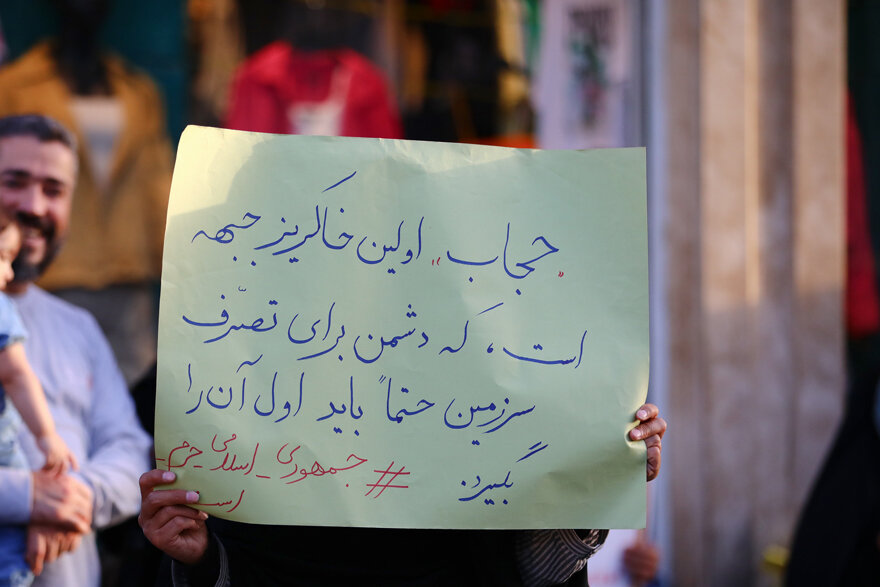 "حجاب" اولین خاکریز جبهه
است، که دشمن برای تصرّف
سرزمین حتماً باید اول آن را
بگیرد.
#جمهوری_اسلامی_حرم_
است